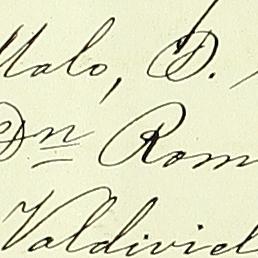 Malo, D.
Dn Rom
Valdivie